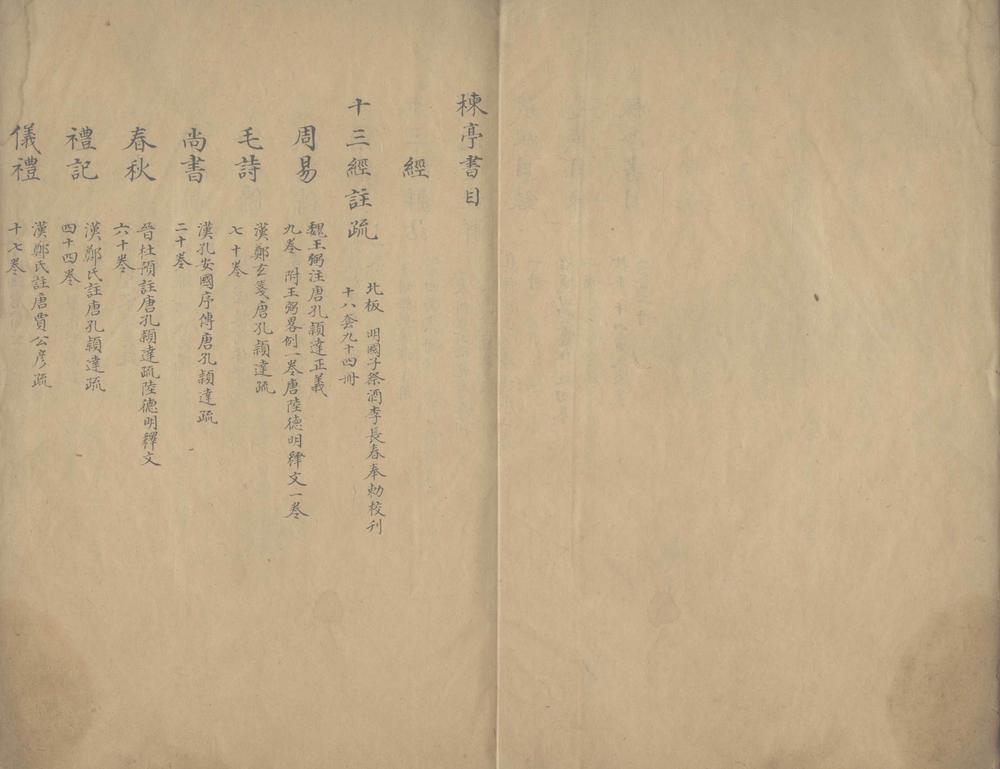 楝亭書目
經
十三經註疏
北板 明國子祭酒李長春奉勅校刊
十八套九十四冊
周易
魏王弼注唐孔穎達正義
九卷 附王弼畧例一卷唐陸德明釋文一卷
毛詩
漢鄭玄箋唐孔穎達疏
七十卷
尚書
漢孔安國序傳唐孔穎達疏
二十卷
春秋
晉杜預註唐孔穎達疏陸德明釋文
六十卷
禮記
漢鄭氏註唐孔穎達疏
四十四卷
儀禮
漢鄭氏註唐賈公彥疏
十七卷